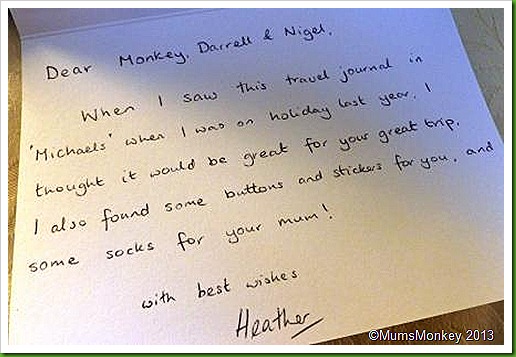 Dear Monkey, Darrell & Nigel,
When I saw this travel journal in
'Michaels' when I was on holiday last year, I
thought it would be great for your great trip.
I also found some buttons and stickers for you, and
some socks for your mum!
with best wishes
Heather
©MumsMonkey 2013